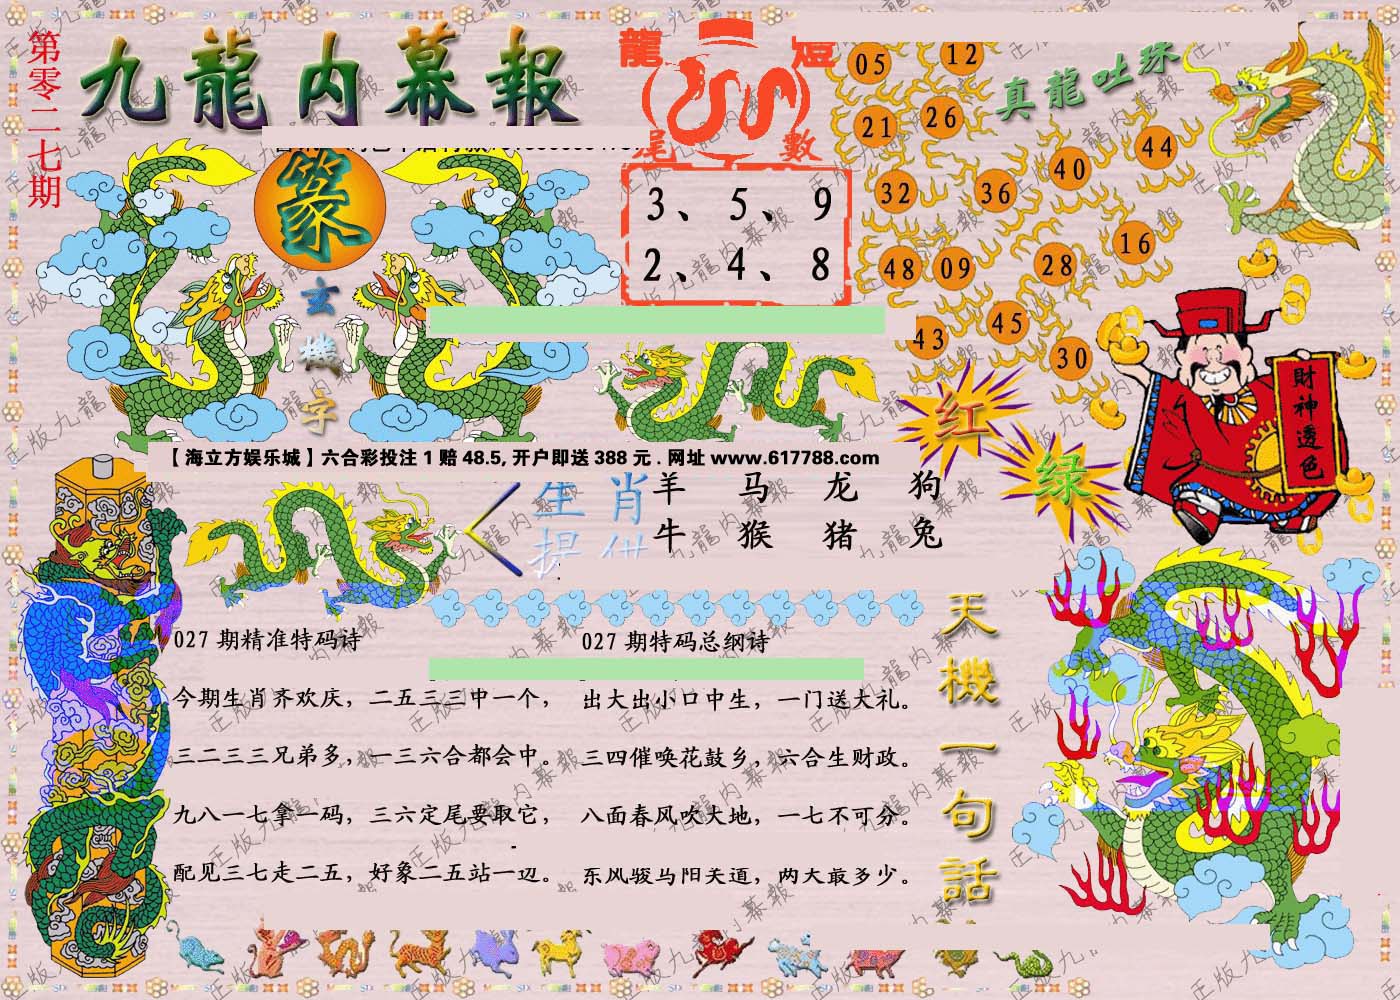 第零二七期
九龍内幕報
龍燈
尾數
3、5、9
2、4、8
真龍吐珠
05 12
21 26
44
40
32 36
16
48 09 28
45
43 30
篆
玄機字
财神透色
红
绿
【海立方娱乐城】六合彩投注1赔48.5,开户即送388元.网址www.617788.com
生肖
提供
羊 马 龙 狗
牛 猴 猪 兔
天機一句話
027期精准特码诗
今期生肖齐欢庆，二五三三中一个，
三二三三兄弟多，一三六合都会中。
九八一七拿一码，三六定尾要取它，
配见三七走二五，好象二五站一边。
027期特码总纲诗
出大出小口中生，一门送大礼。
三四催唤花鼓乡，六合生财政。
八面春风吹大地，一七不可分。
东风骏马阳关道，两大最多少。
正版九龍内幕報